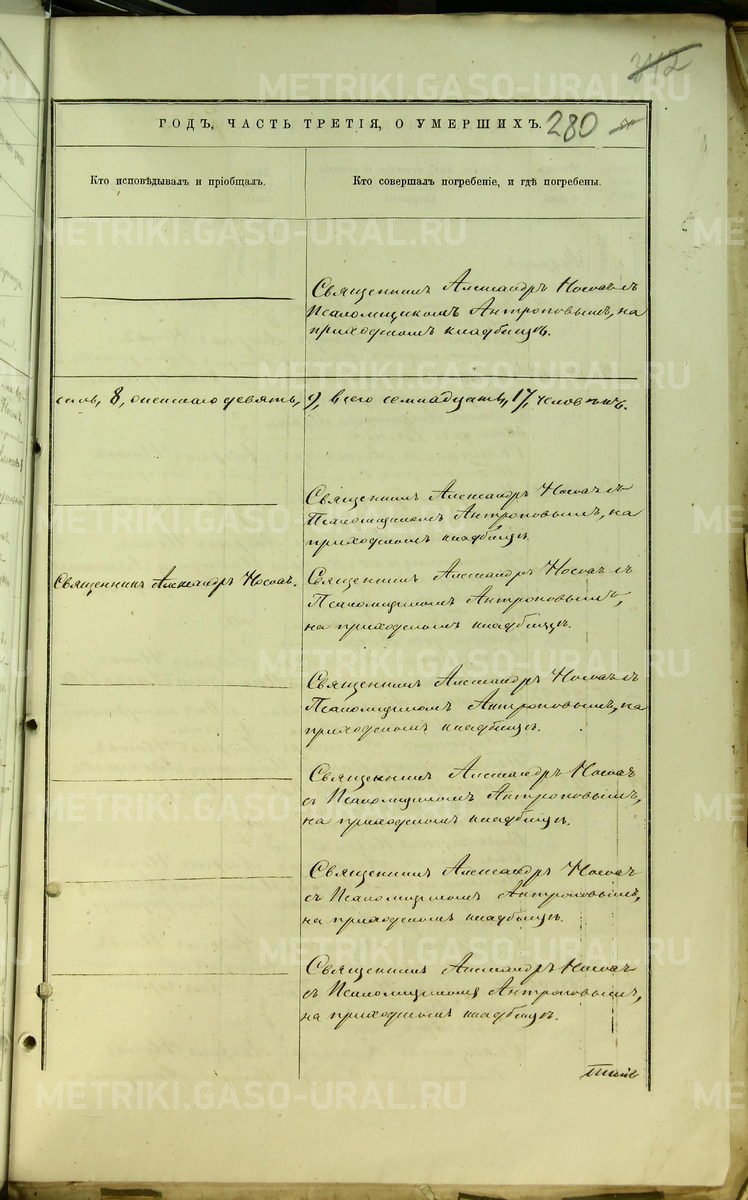 312
ГОДЪ, ЧАСТЬ ТРЕТІЯ, О УМЕРШИХЪ. 280
Кто исповѣдывалъ и пріобщалъ.
Кто совершалъ погребеніе, и гдѣ погребены.
Священникъ Александръ Носовъ съ
Псаломщикомъ Антроповымъ, на
приходскомъ кладбищѣ.
семь, 8, женскаго девять, 9, всего семнадцать, 17, человѣкъ.
Священникъ Александръ Носовъ съ
Псаломщикомъ Антроповымъ, на
приходскомъ кладбищѣ.
Священникъ Александръ Носовъ.
Священникъ Александръ Носовъ съ
Псаломщикомъ Антроповымъ,
на приходскомъ кладбищѣ.
Священникъ Александръ Носовъ съ
Псаломщикомъ Антроповымъ, на
приходскомъ кладбищѣ.
Священникъ Александръ Носовъ
съ Псаломщикомъ Антроповымъ,
на приходскомъ кладбищѣ.
Священникъ Александръ Носовъ
съ Псаломщикомъ Антроповымъ,
на приходскомъ кладбищѣ.
Священникъ Александръ Носовъ
съ Псаломщикомъ Антроповымъ,
на приходскомъ кладбищѣ.
METRIKI.GASO-URAL.RU